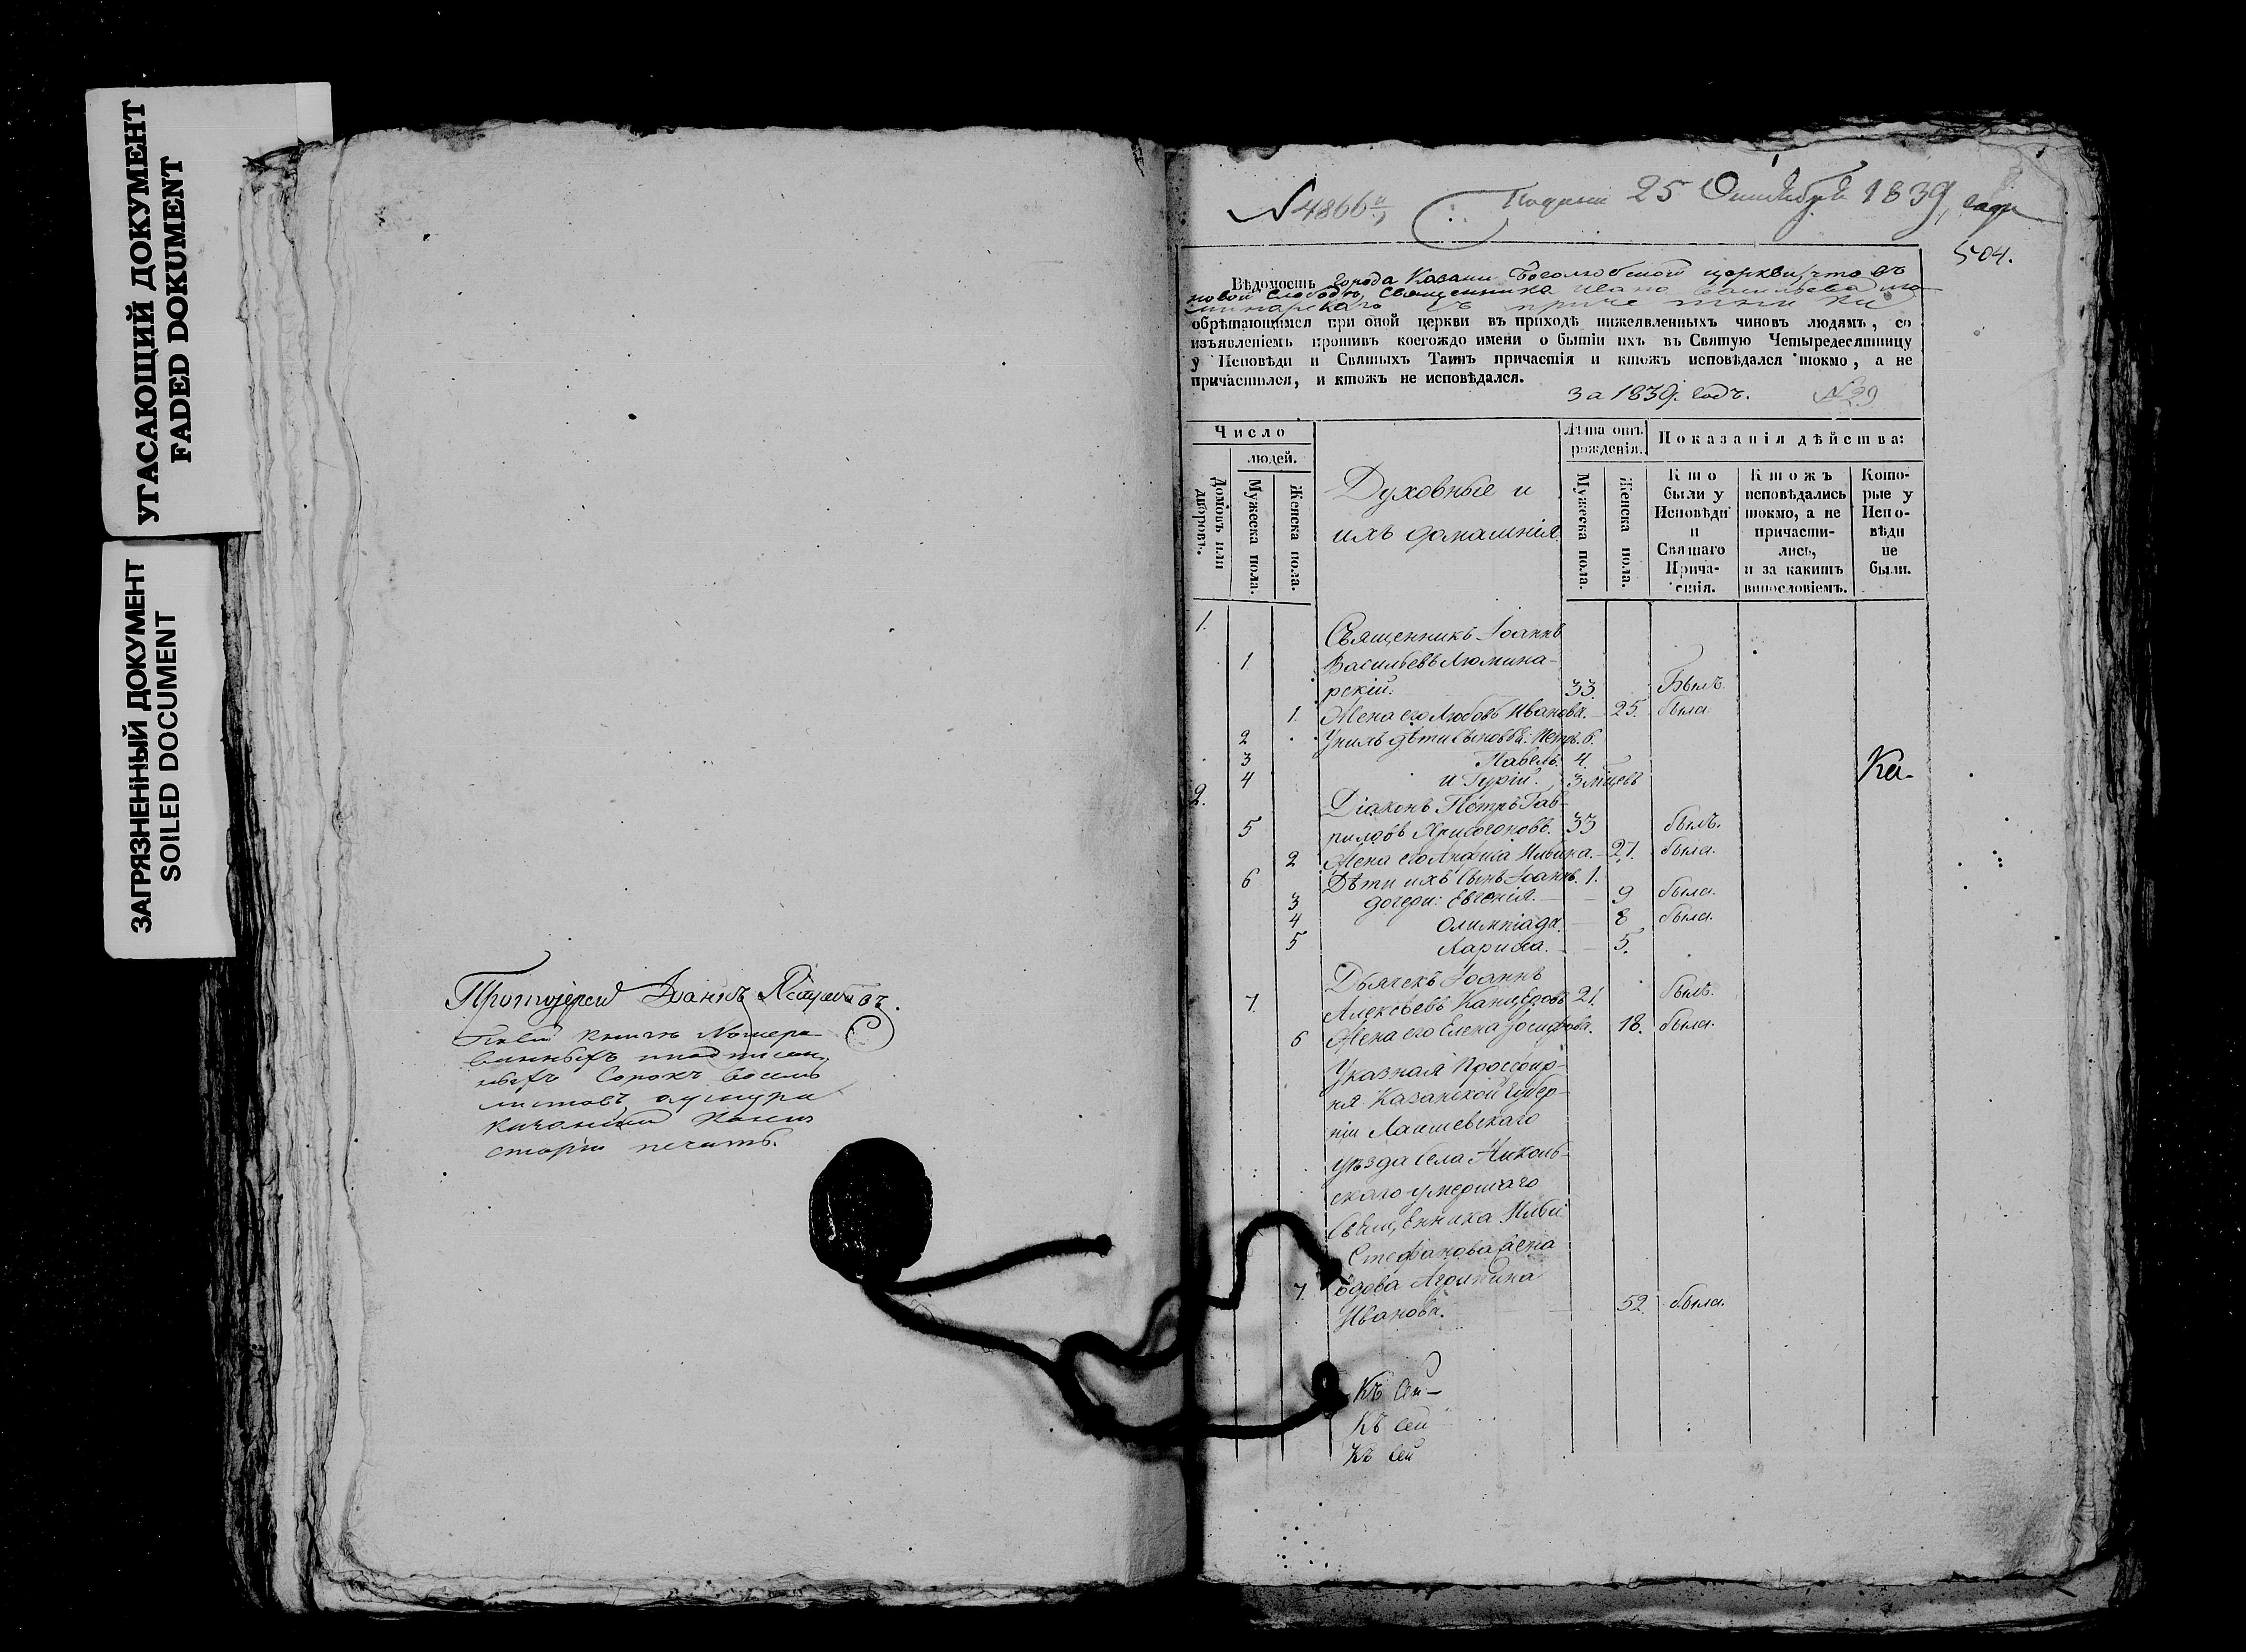 УГАСАЮЩИЙ ДОКУМЕНТ
FADED DOCUMENT
ЗАГРЯЗНЕННЫЙ ДОКУМЕНТ
SOILED DOCUMENT
Протоіерей Іоаннъ
въ сей книгѣ Номеро-
ванныхъ
ныхъ Сорокъ восемь
листовъ,
печать.
№ 4866
25 Октября 1839 года
504.
Вѣдомость Города Казани Боголюбской церкви, что въ
новой Слободѣ, Священника Ивана Васильева Лю-
минарскаго съ причетники
обрѣтающимся при оной церкви въ приходѣ нижеявленныхъ чиновъ людямъ, со
изъявленіемъ противъ коегождо имени о бытіи ихъ въ Святую Четыредесятницу
у Исповѣди и Святыхъ Таинъ причастія и ктожъ исповѣдался токмо, а не
причастился, и ктожъ не исповѣдался.
за 1839. годъ. №29
Число
людей.
Домовъ или дворовъ.
Мужеска пола.
Женска пола.
Духовные и
ихъ домашнія.
Лѣта отъ рожденія.
Мужеска пола.
Женска пола.
Показанія дѣйства:
Кто были у Исповѣди и Святаго Прича-стія.
Ктожъ исповѣдались токмо, а не причасти-лись, и за какимъ винословіемъ.
Кото-рые у Испо-вѣди не были.
1. Священникъ Іоаннъ
1. Васильевъ Люмина-
рскій. 33. Былъ.
1. Жена его Любовь Иванова. 25. была
2 У нихъ дѣти сыновья: Петръ. 6.
3 Павелъ. 4.
4 и Гурій. 3 мѣцевъ
Ка-
2. Діаконъ Петръ Гав-
5 риловъ Хрисогоновъ. 33 былъ.
2 Жена его Анфиса Ильина. 27. была.
6 Дѣти ихъ сынъ Іоаннъ. 1.
3 дочери: Евгенія. 9 была.
4 Олимпіада. 8 была.
5 Лариса. 5.
Дьячекъ Іоаннъ
7. Алексѣевъ Канцеровъ 21. былъ.
6 Жена его Елена Іосифова. 18. была.
Указная Просфир-
ня Казанской Губер-
ніи Лаишевскаго
уѣзда села Николь-
скаго умершаго
Священника Ильи
Стефанова жена
7. вдова Агрипина
Иванова. 52. была.
Къ
Къ сей
Къ сей